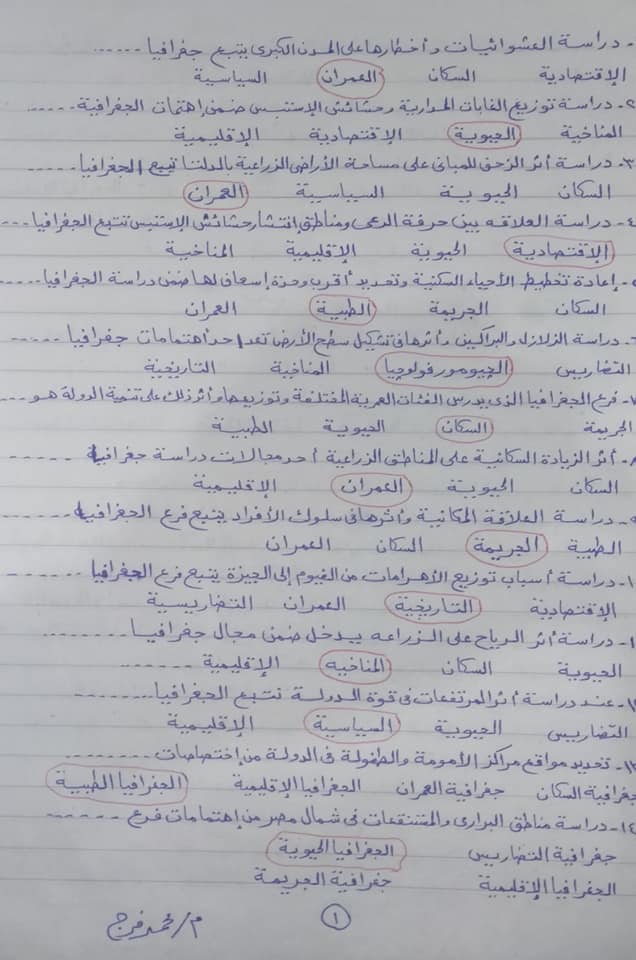 - دراسة العشوائيات وأخطارها على المدن الكبرى يتبع جغرافيا ......
الإقتصادية السكان العمران السياسية
٢- دراسة توزيع الغابات المدارية وحشائش الإستبس ضمن إهتمامات الجغرافية .....
المناخية الحيوية الإقتصادية الإقليمية
٣- دراسة أثر الزحف للمبانى على مساحة الأراضى الزراعية بالدلتا تتبع الجغرافيا
السكان الحيوية السياسية العمران
٤- دراسة العلاقه بين حرفة الرعى ومناطق إنتشار حشائش الإستبس تتبع الجغرافيا...
الإقتصادية الحيوية الإقليمية المناخية
- إعادة تخطيط الأحياء السكنية وتحديد أقرب وحدة إسعاف لها ضمن دراسة الجغرافيا.....
السكان الجريمة الطبية العمران
٦- دراسة الزلازل والبراكين وأثرها فى تشكيل سطح الأرض تعد احد أهتمامات جغرافيا ......
التضاريس الجيومورفولوجيا المناخية التاريخية
٧- فرع الجغرافيا الذى يدرس الفئات العمرية المختلفة وتوزيعها وأثر ذلك على تنمية الدولة هو ...
الجريمة السكان الحيوية الطبية
٨- أثر الزيادة السكانية على المناطق الزراعية أحد مجالات دراسة جغرافيا ......
السكان الحيوية العمران الإقليمية
٩- دراسة العلاقة المكانية وأثرها فى سلوك الأفراد يتبع فرع الجغرافيا
الطبية الجريمة السكان العمران
١- دراسة أسباب توزيع الأهرامات من الفيوم إلى الجيزة يتبع فرع الجغرافيا ......
الإقتصادية التاريخية العمران التضاريسية
١- دراسة أثر الرياح على الزراعه يدخل ضمن مجال جغرافيا ......
الحيوية السكان المناخيه الإقليمية ......
١- عند دراسة أثر المرتفعات فى قوة الدولة نتبع الجغرافيا ......
التضاريس الحيوية السياسية الإقليمية
١٣- تحديد مواقع مراكز الأمومة والطفولة فى الدولة من إختصاصات .......
جغرافية السكان جغرافية العمران الجغرافيا الإقليمية الجغرافيا الطبية
١٤- دراسة مناطق البرارى والمستنقعات فى شمال مصر من إهتمامات فرع ......
جغرافية التضاريس الجغرافيا الحيوية
الجغرافيا الإقليمية جغرافية الجريمة
١
م/ محمد فرج